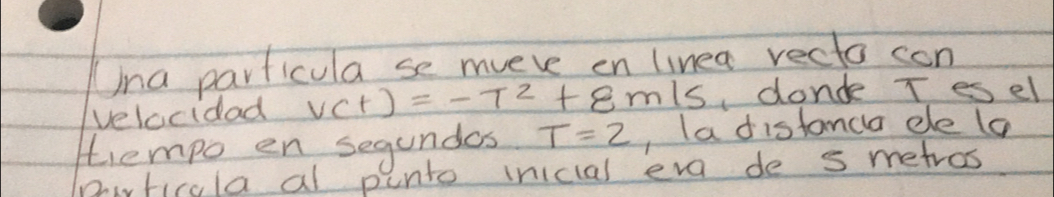 Una particula se mueve en linea recta con
velocidad v(t) = -T² + 8 m/s, donde T es el
tiempo en segundos. T=2, la distancia de la
particula al punto inicial era de 5 metros